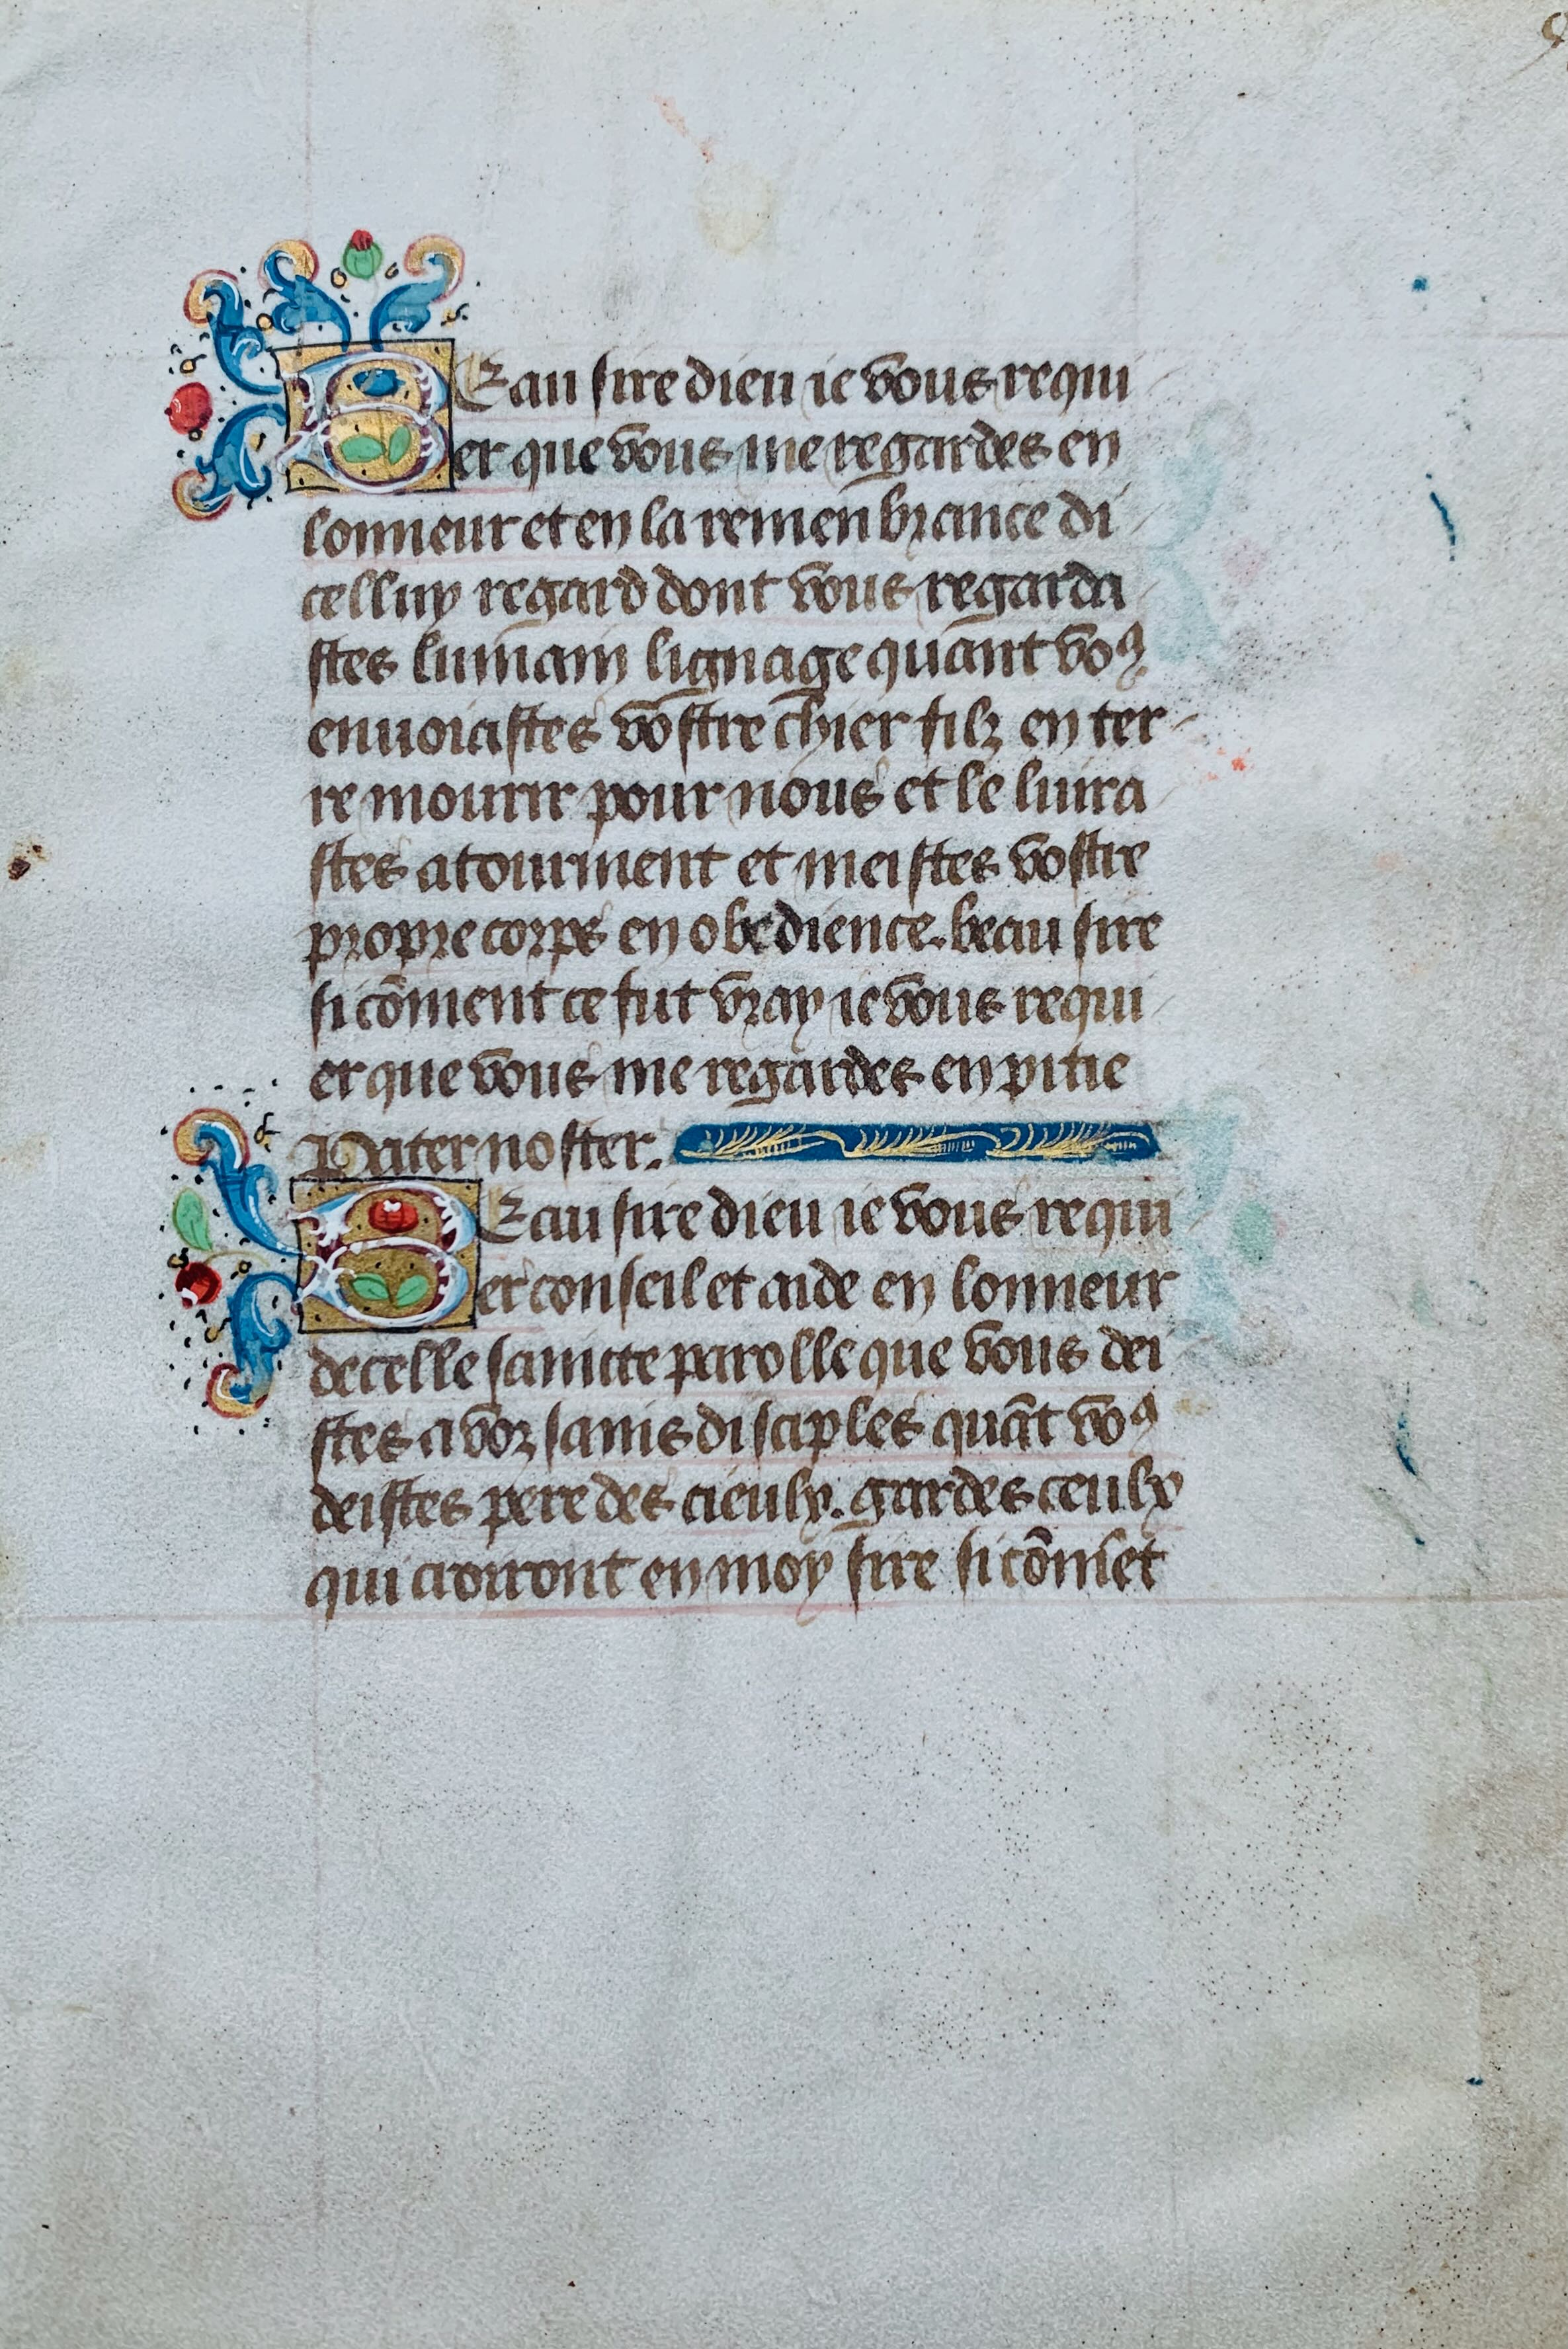 BEau sire dieu ie vous requi
er que vous me regardes en
lonneur et en la remenbrance di
celluy regard dont vous regarda
stes lumain lignage quant voꝰ
enuoiastes vostre chier filz en ter
re mourir pour nous et le liura
stes a tourment et meistes vostre
propre corps en obedience. beau sire
si cōment ce fut vray ie vous requi
er que vous me regardes en pitie
Pater noster.
BEau sire dieu ie vous requi
er conseil et aide en lonneur
de celle saincte parolle que vous dei
stes a voz sains disciples quāt voꝰ
deistes pere des cieulx. gardes ceulx
qui croiront en moy sire si cōmēt